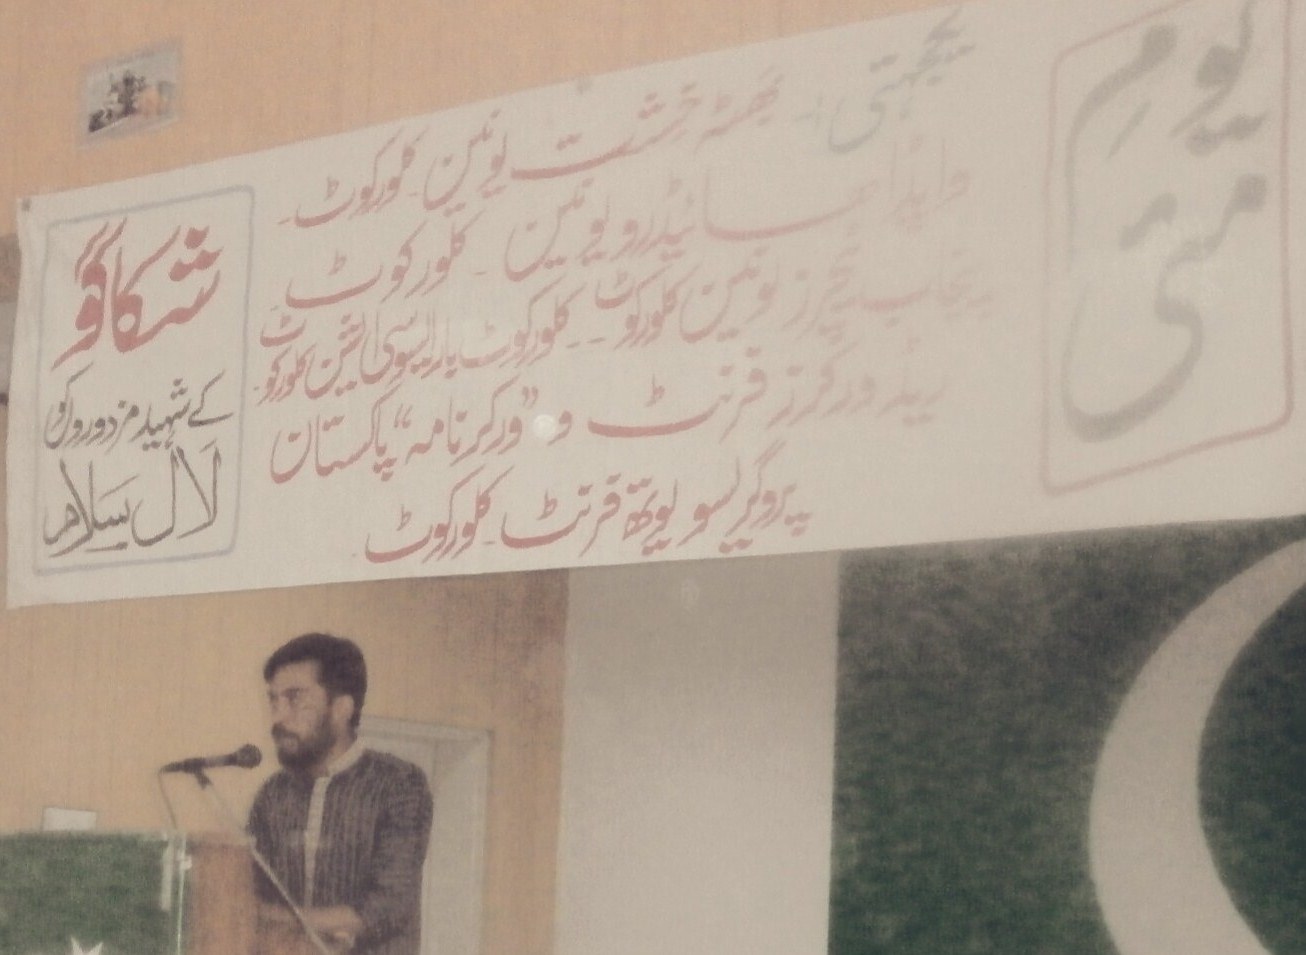 یومِ
مئی
یکجہتی: بھٹہ خشت یونین۔ کلورکوٹ۔
واپڈا ہائیڈرو یونین۔ کلورکوٹ۔
پنجاب ٹیچرز یونین کلورکوٹ۔۔ کلورکوٹ بار ایسوسی ایشن کلورکوٹ۔
ریڈ ورکرز فرنٹ و "ورکرنامہ" پاکستان
پروگریسو یوتھ فرنٹ۔ کلورکوٹ۔
شکاگو
کے شہید مزدوروں کو
لال سلام